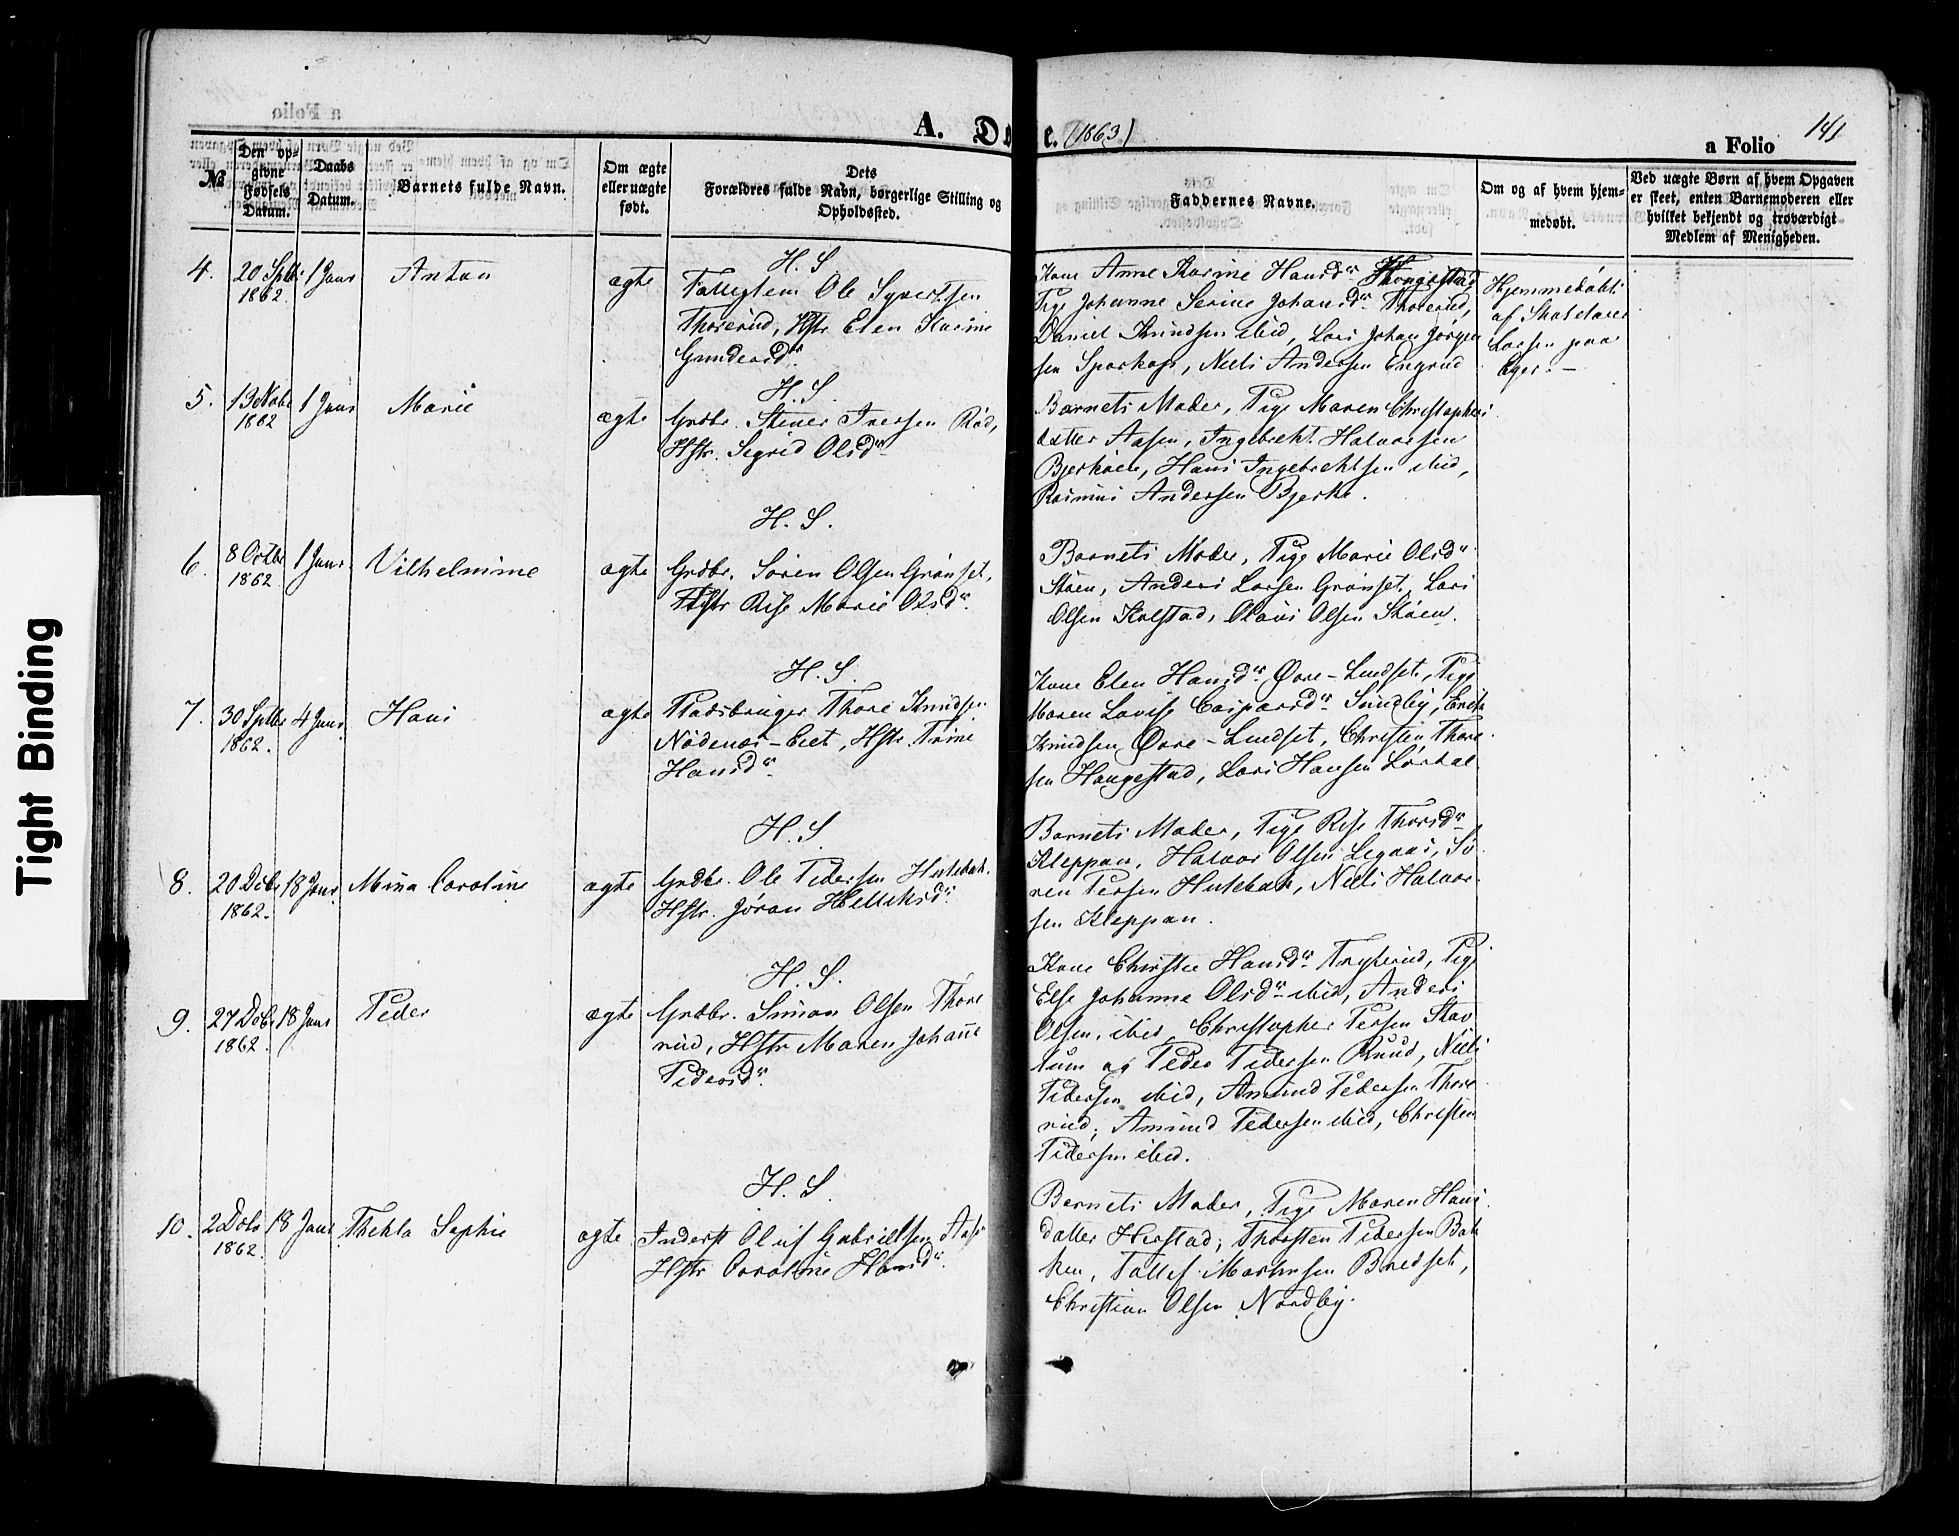 Tight Binding
a Folio
A. Do e. (1863)
a Folio 141
№
Den op-
givne
Fødsels
Datum.
Daabs
Datum.
Barnets fulde Navn.
Om ægte
eller uægte
født.
Dets
Forældres fulde Navn, borgerlige Stilling og
Opholdssted.
Faddernes Navne.
Om og af hvem hjem-
medøbt.
Ved uægte Børn af hvem Opgaven
er skeet, enten Barnemoderen eller
hvilket bekjendt og troværdigt
Medlem af Menigheden.
4. 20 Sptbr 1862. 1 Janr Anton ægte
H. S
Ole Syvertsen
Thorerud, Hstr. Elen Karine
Gundersdr
Kone Anne Karine Hansdr
Pige Johanne Serine Johansdr Thorerud,
Daniel Knudsen ibid, Lars Johan Jørgen
sen, Niels Andersen Engrud
Hjemmedøbt
af Skolelærer
Larsen paa
Eger. –
5. 13 Novbr 1862 1 Janr Marie ægte
H. S.
Grdbr. Stener Iversen Rød,
Hstr. Sigrid Olsdr
Barnets Moder, Pige Maren Christophers
datter Aasen, Ingebrekt Halvorsen
Hans Ingebrektsen ibid,
Rasmus Andersen Bjerke.
6. 8 Octbr 1862 1 Janr Vilhelmine ægte
H. S.
Grdbr. Søren Olsen Grønset,
Hstr Rise Marie Olsdr.
Barnets Moder, Pige Marie Olsdr
Støen, Anders Larsen Grønset, Lars
Olsen Kolstad, Olaus Olsen Støen.
7. 30 Sptbr 1862. 4 Janr Hans ægte
H. S.
Pladsbruger Thore Knudsen
Nødenæs-Eiet, Hstr. Trine
Hansdr
Kone Elen Hansdr Øvre-Lundset, Pige
Maren Lovise Caspersdr Sundby, Erik
Knudsen Øvre-Lundset, Christen Thore
sen Haugestad, Lars Hansen Lørdal
8. 20 Dcbr 1862. 18 Janr Mina Caroline ægte
H. S.
Grdbr. Ole Pedersen
Hstr. Jøran
Barnets Moder, Pige Rise Thorsdr
Kleppan, Halvor Olsen Sø-
ren Persen, Niels Halvor-
sen Kleppan.
9. 27 Dcbr 1862. 18 Janr Peder ægte
H. S.
Grdbr. Simon Olsen Thore
rud, Hstr Maren Johanne
Pedersdr.
Kone Christine Hansdr Pige
Else Johanne Olsdr ibid, Anders
Olsen, ibid, Christopher Persen Stav
lum og Peder Pedersen Ruud, Niels
Pedersen ibid, Amund Pedersen Thore
rud, Amund Pedersen ibid, Christen
Pedersen ibid.
10. 2 Dcbr 1862. 18 Janr Thekla Sophie ægte
H. S.
Inderst Oluf Gabrielsen
Hstr Caroline Hansdr.
Barnets Moder, Pige Maren Hans
datter Herstad, Thorsten Pedersen Bak
ken, Tollef
Christian Olsen Nordby.